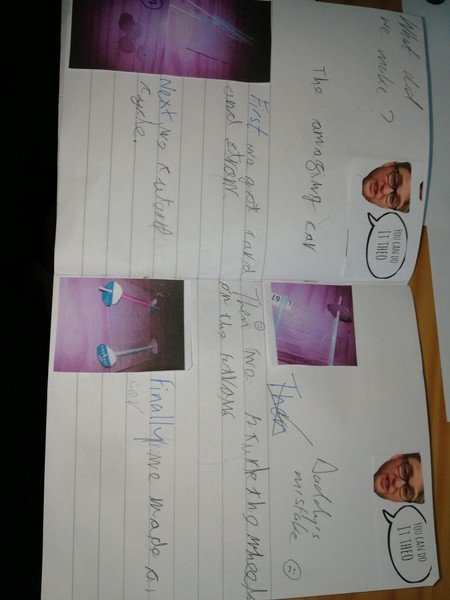 What did
we make?
The amazing car
YOU CAN DO
IT THEO
First we got card
and straw.
Next, we cut and
cycle.
YOU CAN DO
IT THEO
Daddy's
mistake
Then
Then we the wheels
on the straw
Finally, we made a
car